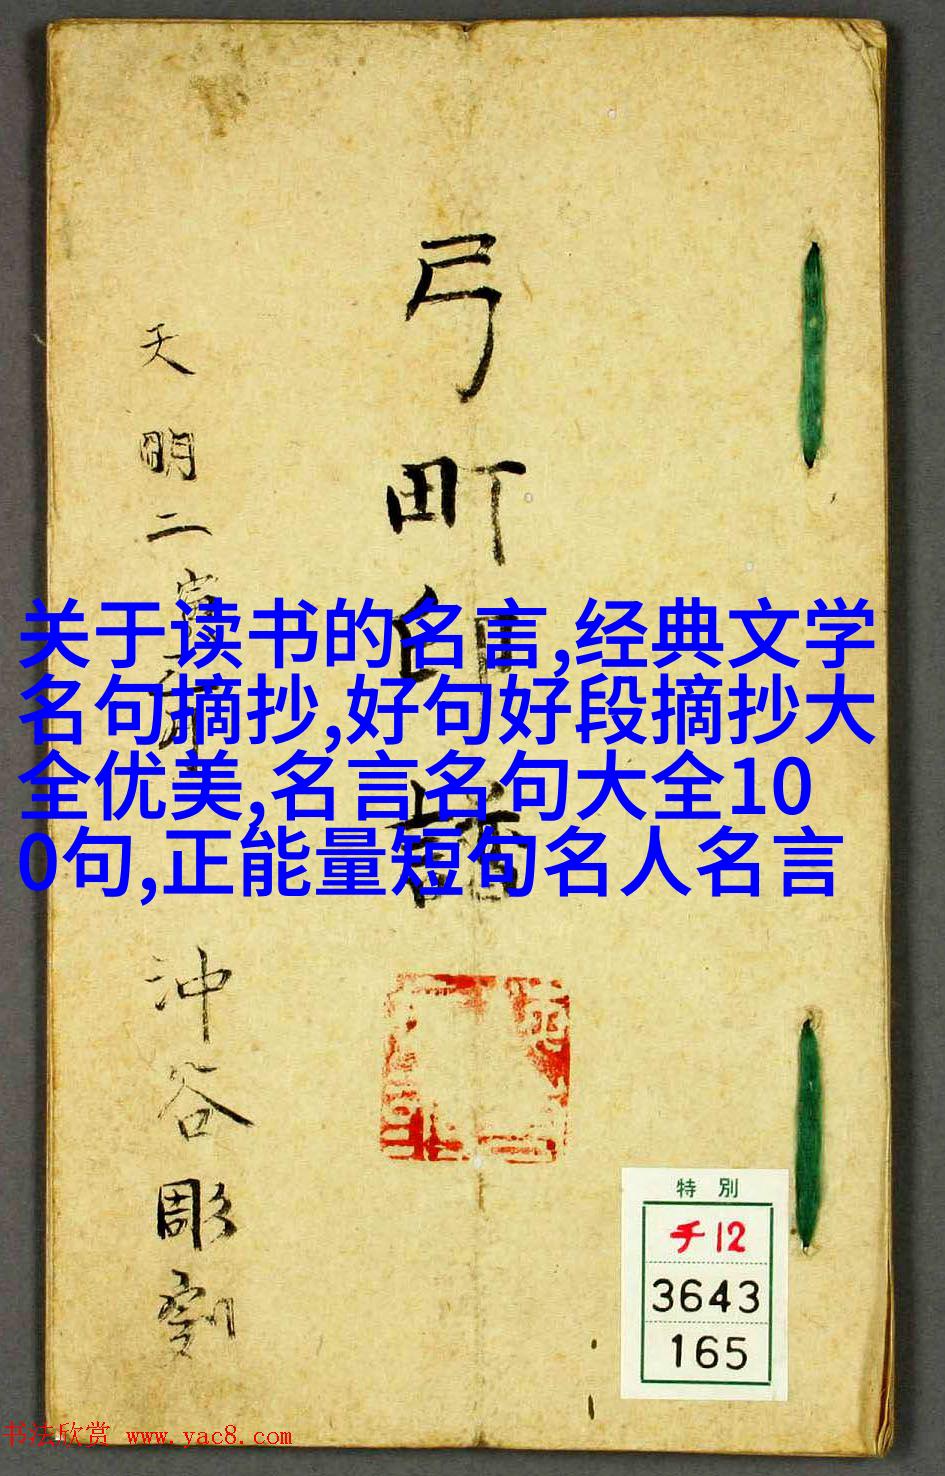 弓町印譜
天明二寅年
沖谷彫刻
关于读书的名言,经典文学
名句摘抄,好句好段摘抄大
全优美,名言名句大全10
0句,正能量短句名人名言
特別
チ12
3643
165
书法欣赏 www.yac8.com